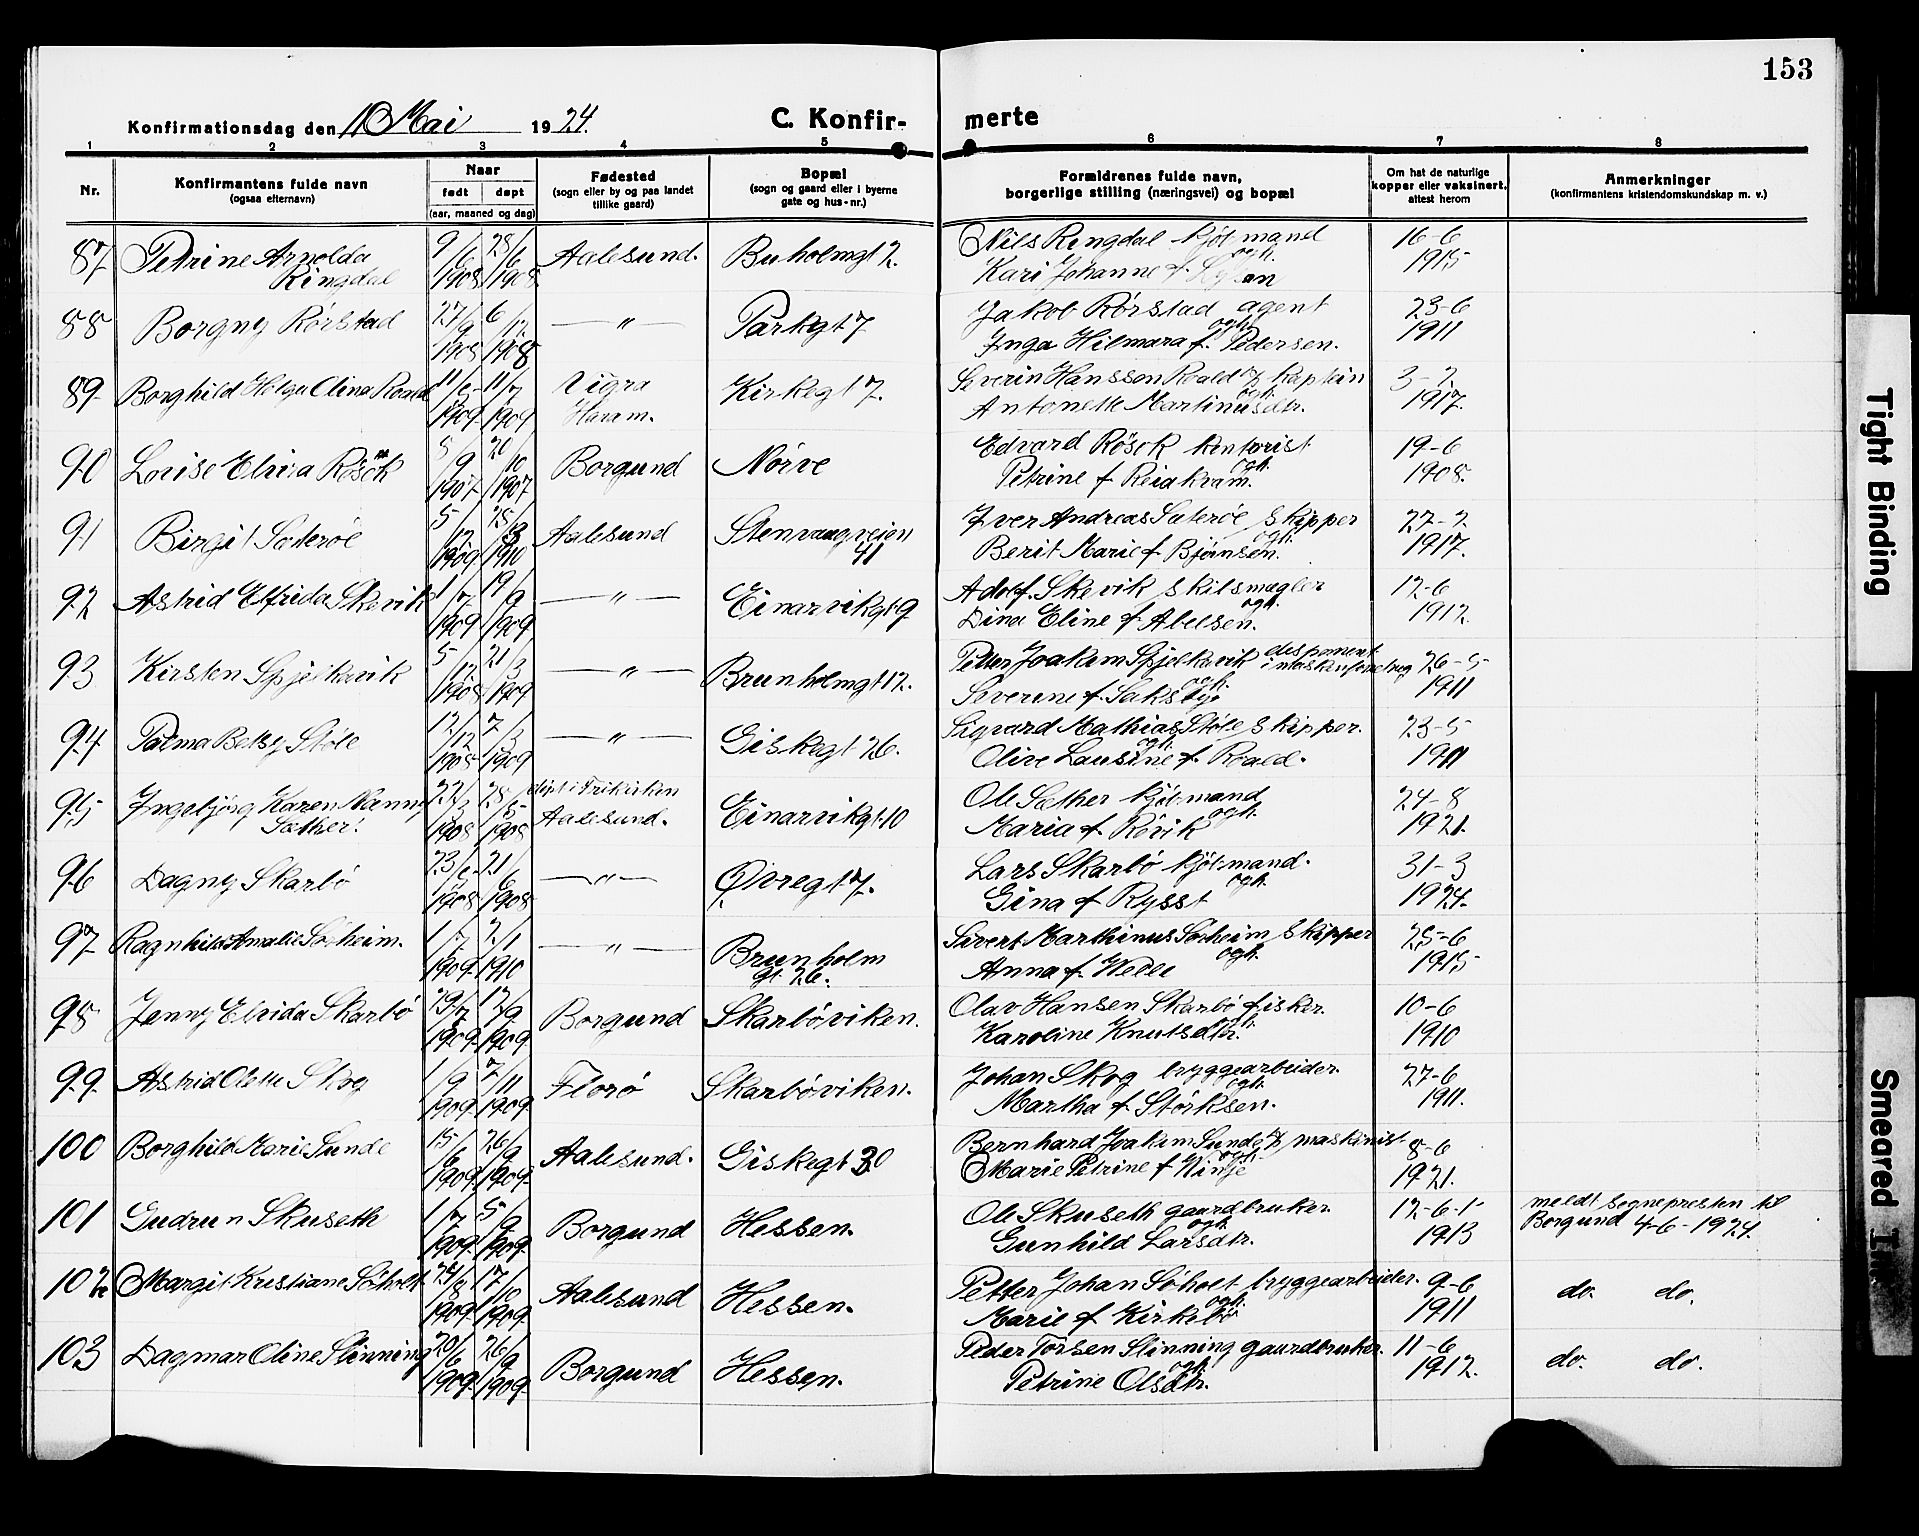 153
Konfirmationsdag den 11 Mai 1924.
C. Konfir-merte
1 2 3 4 5 6 7 8
Nr.
Konfirmantens fulde navn
(ogsaa efternavn)
Naar
født døpt
(aar, maaned og dag)
Fødested
(sogn eller by og paa landet
tillike gaard)
Bopæl
(sogn og gaard eller i byerne
gate og hus-nr.)
Forældrenes fulde navn,
borgerlige stilling (næringsvei) og bopæl
Om hat de naturlige
kopper eller vaksinert,
attest herom
Anmerkninger
(konfirmantens kristendomskundskap m. v.)
87 Petrine Arnolda Ringdal 9/6 1908 28/6 1908 Aalesund. Buholmgt 2. Nils Ringdal kjøbmand ogh.
Kari Johanne f. 16-6 1915
88 Borgny Rørstad 27/9 1908 6/12 1908 —"— Parkgt 7 Jakob Rørstad agent ogh.
Inga Hilmara f. Pedersen. 23-6 1911
89. Borghild Helga Olina Roald 11/5 1909 11/7 1909 Vigra Haram. Kirkegt 7. Severin Hansson Roald kaptein ogh.
Antonette Martinusdtr. 3-7 1917.
90 Lovise Elvira Røsok 5/9 1907 20/10 1907 Borgund Nørve Edvard Røsok kontorist ogh.
Petrine f Reiakvam. 19-6 1908.
91 Birgit Sæterøe 5/12 1909 25/3 1910 Aalesund Stenvaagveien 41 Iver Andreas Sæterøe skipper ogh.
Berit Marie f Bjørnsen. 27-7 1917.
92 Astrid Elfrida Skevik 1/7 1909 19/9 1909 —"— Einarvikgt 9 Adolf. Skevik skibsmægler ogh.
Dina Eline f Abelsen. 12-6 1912.
93 Kirsten Spjelkavik 5/12 1908 21/3 1909 —"— Brunholmgt 12. Petter Joakim Spjelkavik disponent i maskinforretneg ogh.
Severine f. 26-5 1911
94 Palma Betsy Støle 12/12 1908 7/3 1909 —"— Giskegt 26. Sigvard Mathias Støle skipper. ogh.
Olive Lausine f. Roald. 23-5 1911
95 Ingebjørg Karen Nanny Sæther. 22/3 1908 28/5 1908 døpt i Frikirken Aalesund. Einarvikgt 10 Ole Sæther kjøbmand ogh.
Maria f. Røvik 24-8 1921.
96 Dagny Skarbø 23/5 1908 21/6 1908 —"— Øvregt 7. Lars Skarbø kjøbmand. ogh.
Gina f Rysst 31-3 1924.
97 Ragnhild Amalie Søvheim. 1/7 1909. 2/1 1910 —"— Brunholm gt 26. Sivert Marthinus Søvheim skipper ogh.
Anna f. 25-6 1915
98 Jenny Elvida Skarbø 29/7 1909. 12/9 1909. Borgund Skarbøviken. Olav Hansen Skarbø fisker. ogh.
Karoline Knutsdtr. 10-6 1910
99. Astrid Olette Skog 1/9 1909. 7/11 1909. Florø Skarbøviken. Johan Skog bryggearbeider. ogh.
Martha f Størksen. 27-6 1911.
100 Borghild Marie Sunde 15/6 1909. 26/9 1909. Aalesund. Giskegt 30 Bernhard Joakim Sunde maskinist ogh.
Marie Petrine f Vinje 8-6 1921.
101 Gudrun Skuseth 1/7 1909. 5/9 1909. Borgund Hessen. Ole Skuseth gaardbruker ogh.
Gunhild Larsdtr. 12-6-1 1913 meldt sognepresten til
Borgund 4-6-1924.
102 Margit Kristiane Søholt 24/8 1909. 17/10 1909. Aalesund Hessen. Petter Johan Søholt bryggearbeider. ogh.
Marie f Kirkebø 9-6 1911 do. do.
103 Dagmar Oline Slinning 20/6 1909. 26/9 1909. Borgund Hessen. Peder Torsen Slinning gaardbruker. ogh.
Petrine Olsdtr. 11-6 1912. do. do.
Tight Binding
Smeared Ink